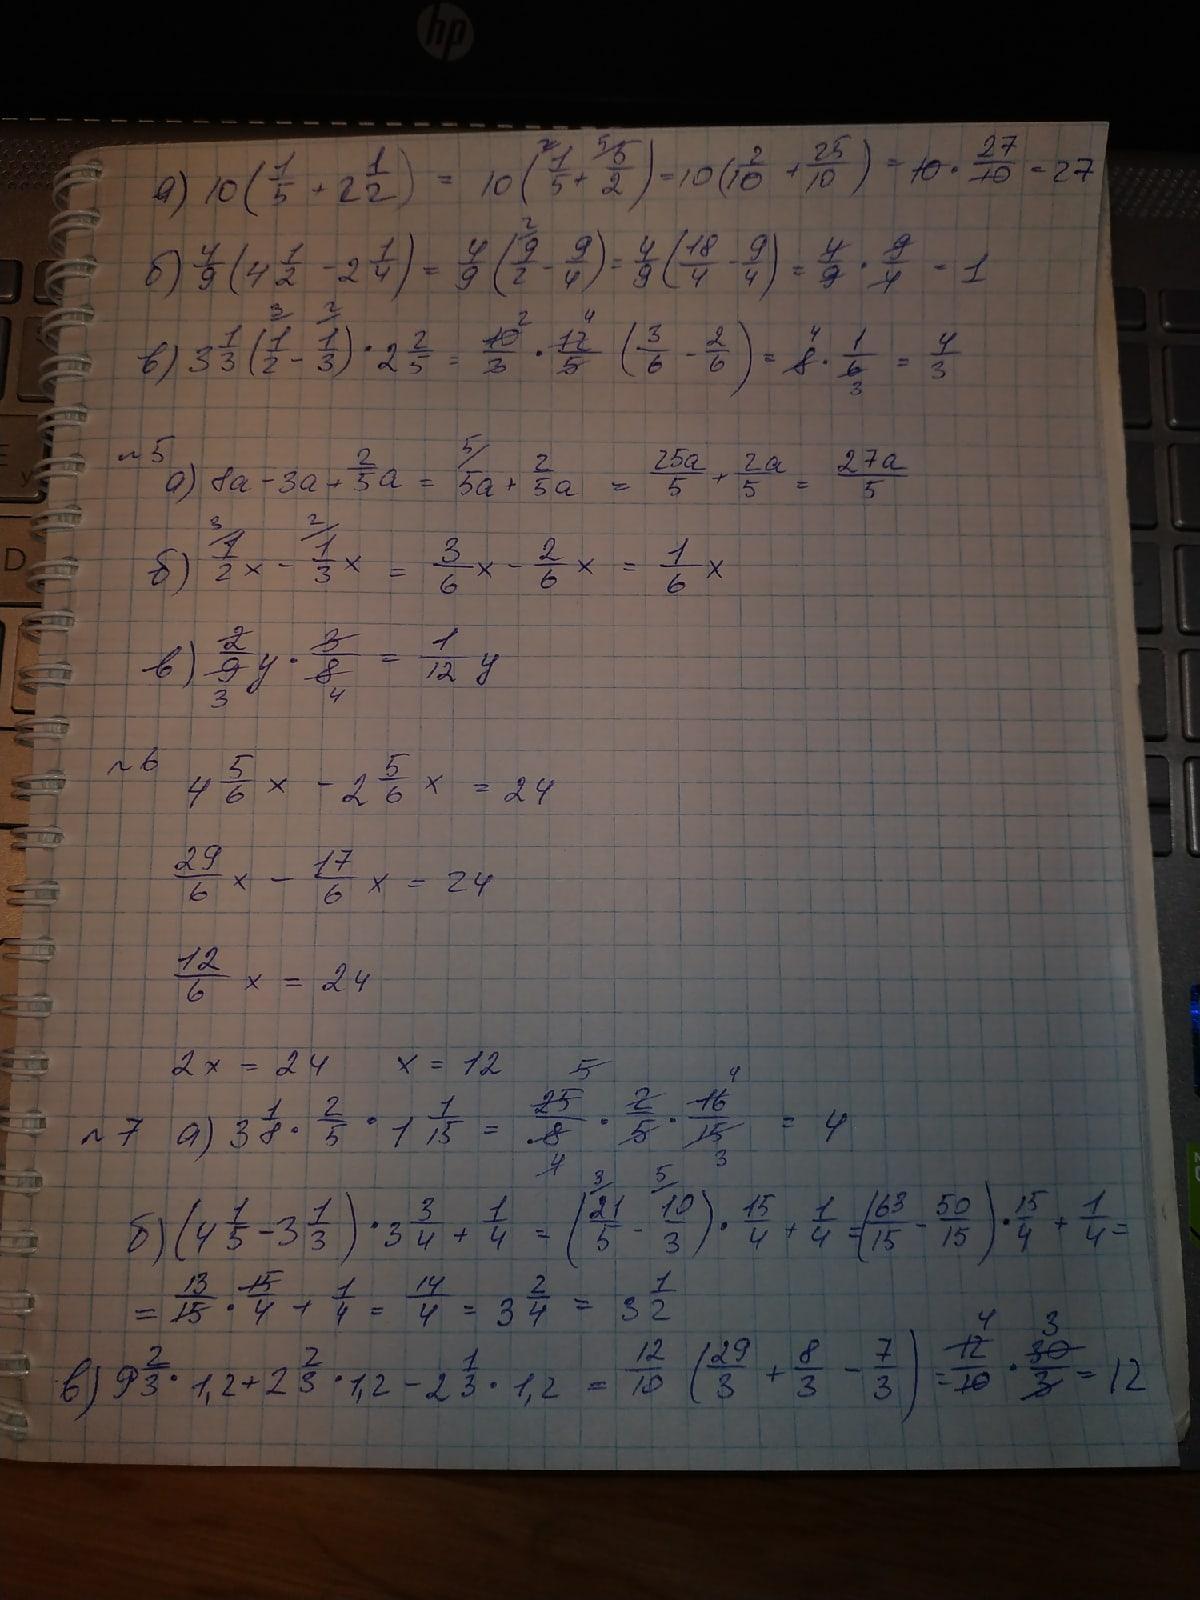 hp
а) 10(1/5 + 2 1/2) = 10(1/5 + 5/2) = 10(2/10 + 25/10) = 10 · 27/10 = 27
б) 4/9(4 1/2 - 2 1/4) = 4/9(9/2 - 9/4) = 4/9(18/4 - 9/4) = 4/9 · 9/4 = 1
в) 3 1/3(1/2 - 1/3) · 2 2/5 = 10/3 · 12/5 (3/6 - 2/6) = 8 · 1/6 = 4/3
~5
а) 8a - 3a + 2/5a = 5a + 2/5a = 25a/5 + 2a/5 = 27a/5
б) 1/2x - 1/3x = 3/6x - 2/6x = 1/6x
в) 2/9y · 3/8 = 1/12y
~6 4 5/6x - 2 5/6x = 24
29/6x - 17/6x = 24
12/6x = 24
2x = 24 x = 12
~7 а) 3 1/8 · 2/5 · 1 1/15 = 25/8 · 2/5 · 16/15 = 4
б) (4 1/5 - 3 1/3) · 3 3/4 + 1/4 = (21/5 - 10/3) · 15/4 + 1/4 = (63/15 - 50/15) · 15/4 + 1/4 =
= 13/15 · 15/4 + 1/4 = 14/4 = 3 2/4 = 3 1/2
в) 9 2/3 · 1,2 + 2 2/3 · 1,2 - 2 1/3 · 1,2 = 12/10 (29/3 + 8/3 - 7/3) = 12/10 · 30/3 = 12